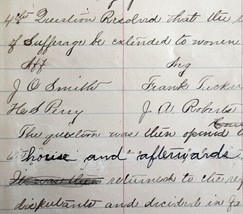 4th Question Resolved that the
of Suffrage be extended to women
Aff Neg
J O Smith Frank
H S Perry J A Roberts
The question was then opened t
house and afterwards
returned to the reg
disputants and decided in fa